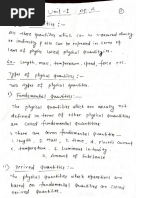 Unit-I
quantities :-
All those quantities which can be measured directly
or indirectly & also can be expressed in terms of
laws of physics called physical quantities.
Ex:- Length, mass, temperature, speed, force
Types of physical Quantities :-
Two types of physical quantities.
i) Fundamental Quantities :-
The physical quantities which are usually not
defined in terms of other physical quantities
are called fundamental quantities.
There are seven fundamental quantities
Length, mass, time, electric current
temperature luminous intensity
amount of substance
ii) Derived Quantities :-
The physical quantities which
based on fundamental quantities are called
derived quantities.